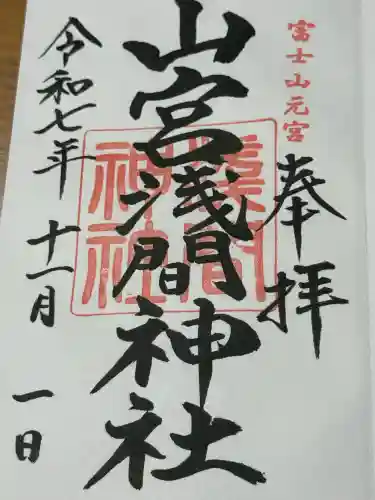 富士山元宮
奉拝
山宮浅間神社
淺間
神社
令和七年十一月一日